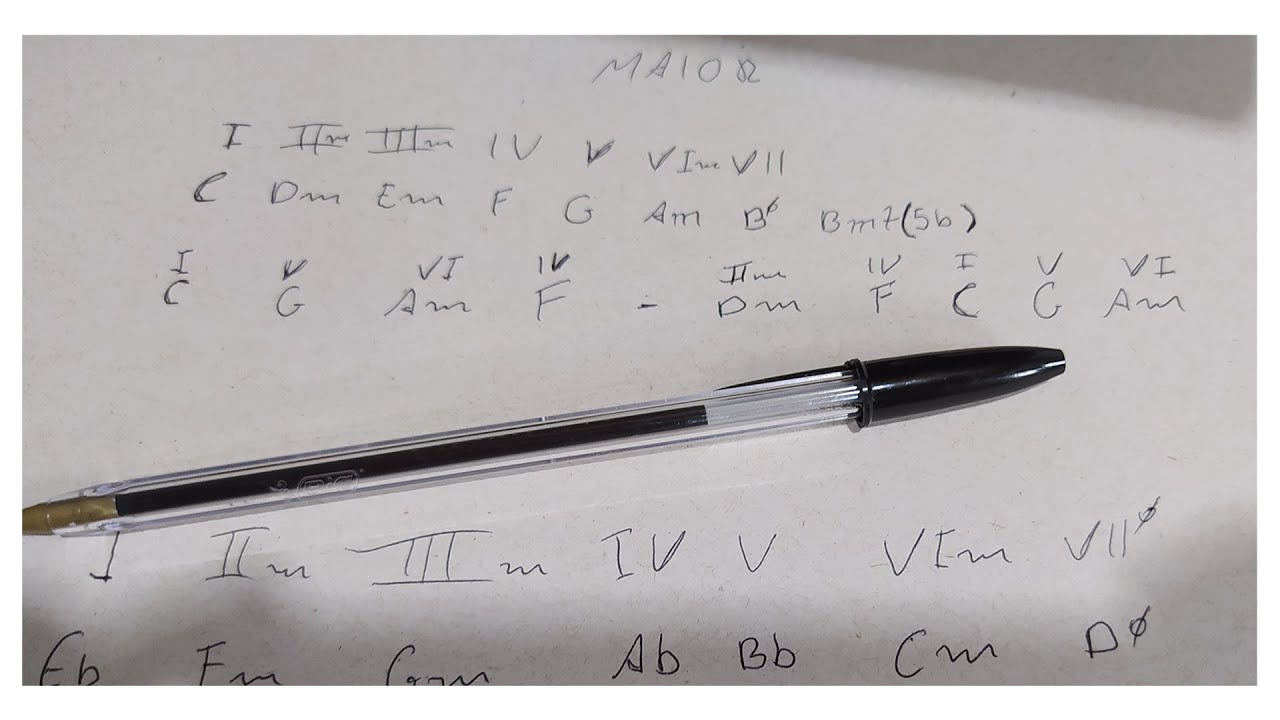 MAIOR
I IIm IIIm IV V VIm VII
C Dm Em F G Am Bø Bm7(5b)
I V VI IV IIm IV I V VI
C G Am F - Dm F C G Am
BIC
I IIm IIIm IV V VIm VIIø
Eb Fm Gm Ab Bb Cm Dø